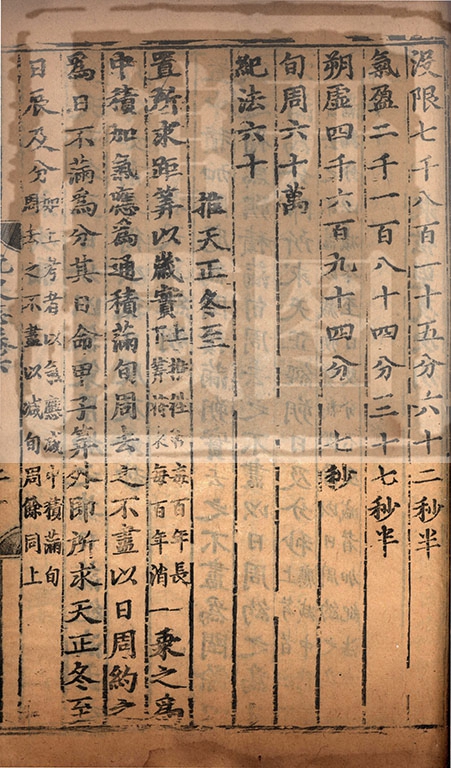 没限七千八百一十五分六十二秒半
氣盈二千一百八十四分三十七秒半
朔虛四千六百九十四分七秒
旬周六十萬
紀法六十
推天正冬至
置所求距算以歲實上推往古每百年長下算將來每百年消一乘之爲
中積加氣應爲通積滿旬周去之不盡以日周約之
爲日不滿爲分其日命甲子算外即所求天正冬至
日辰及分如上考者以氣應減中積滿旬周去之不盡以減旬周餘同上